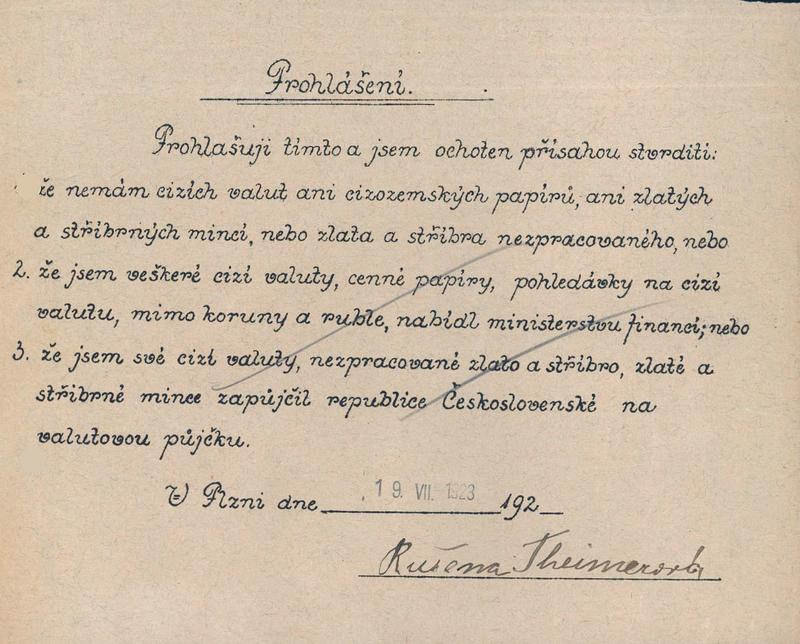 Prohlášení.
Prohlašuji tímto a jsem ochoten přísahou stvrditi:
že nemám cizích valut ani cizozemských papírů, ani zlatých
a stříbrných mincí, nebo zlata a stříbra nezpracovaného, nebo
2. že jsem veškeré cizí valuty, cenné papíry, pohledávky na cizí
valutu, mimo koruny a ruble, nabídl ministerstvu financí; nebo
3. že jsem své cizí valuty, nezpracované zlato a stříbro, zlaté a
stříbrné mince zapůjčil republice Československé na
valutovou půjčku.
V Plzni dne 19. VII. 1923 192
Růžena Theimerová